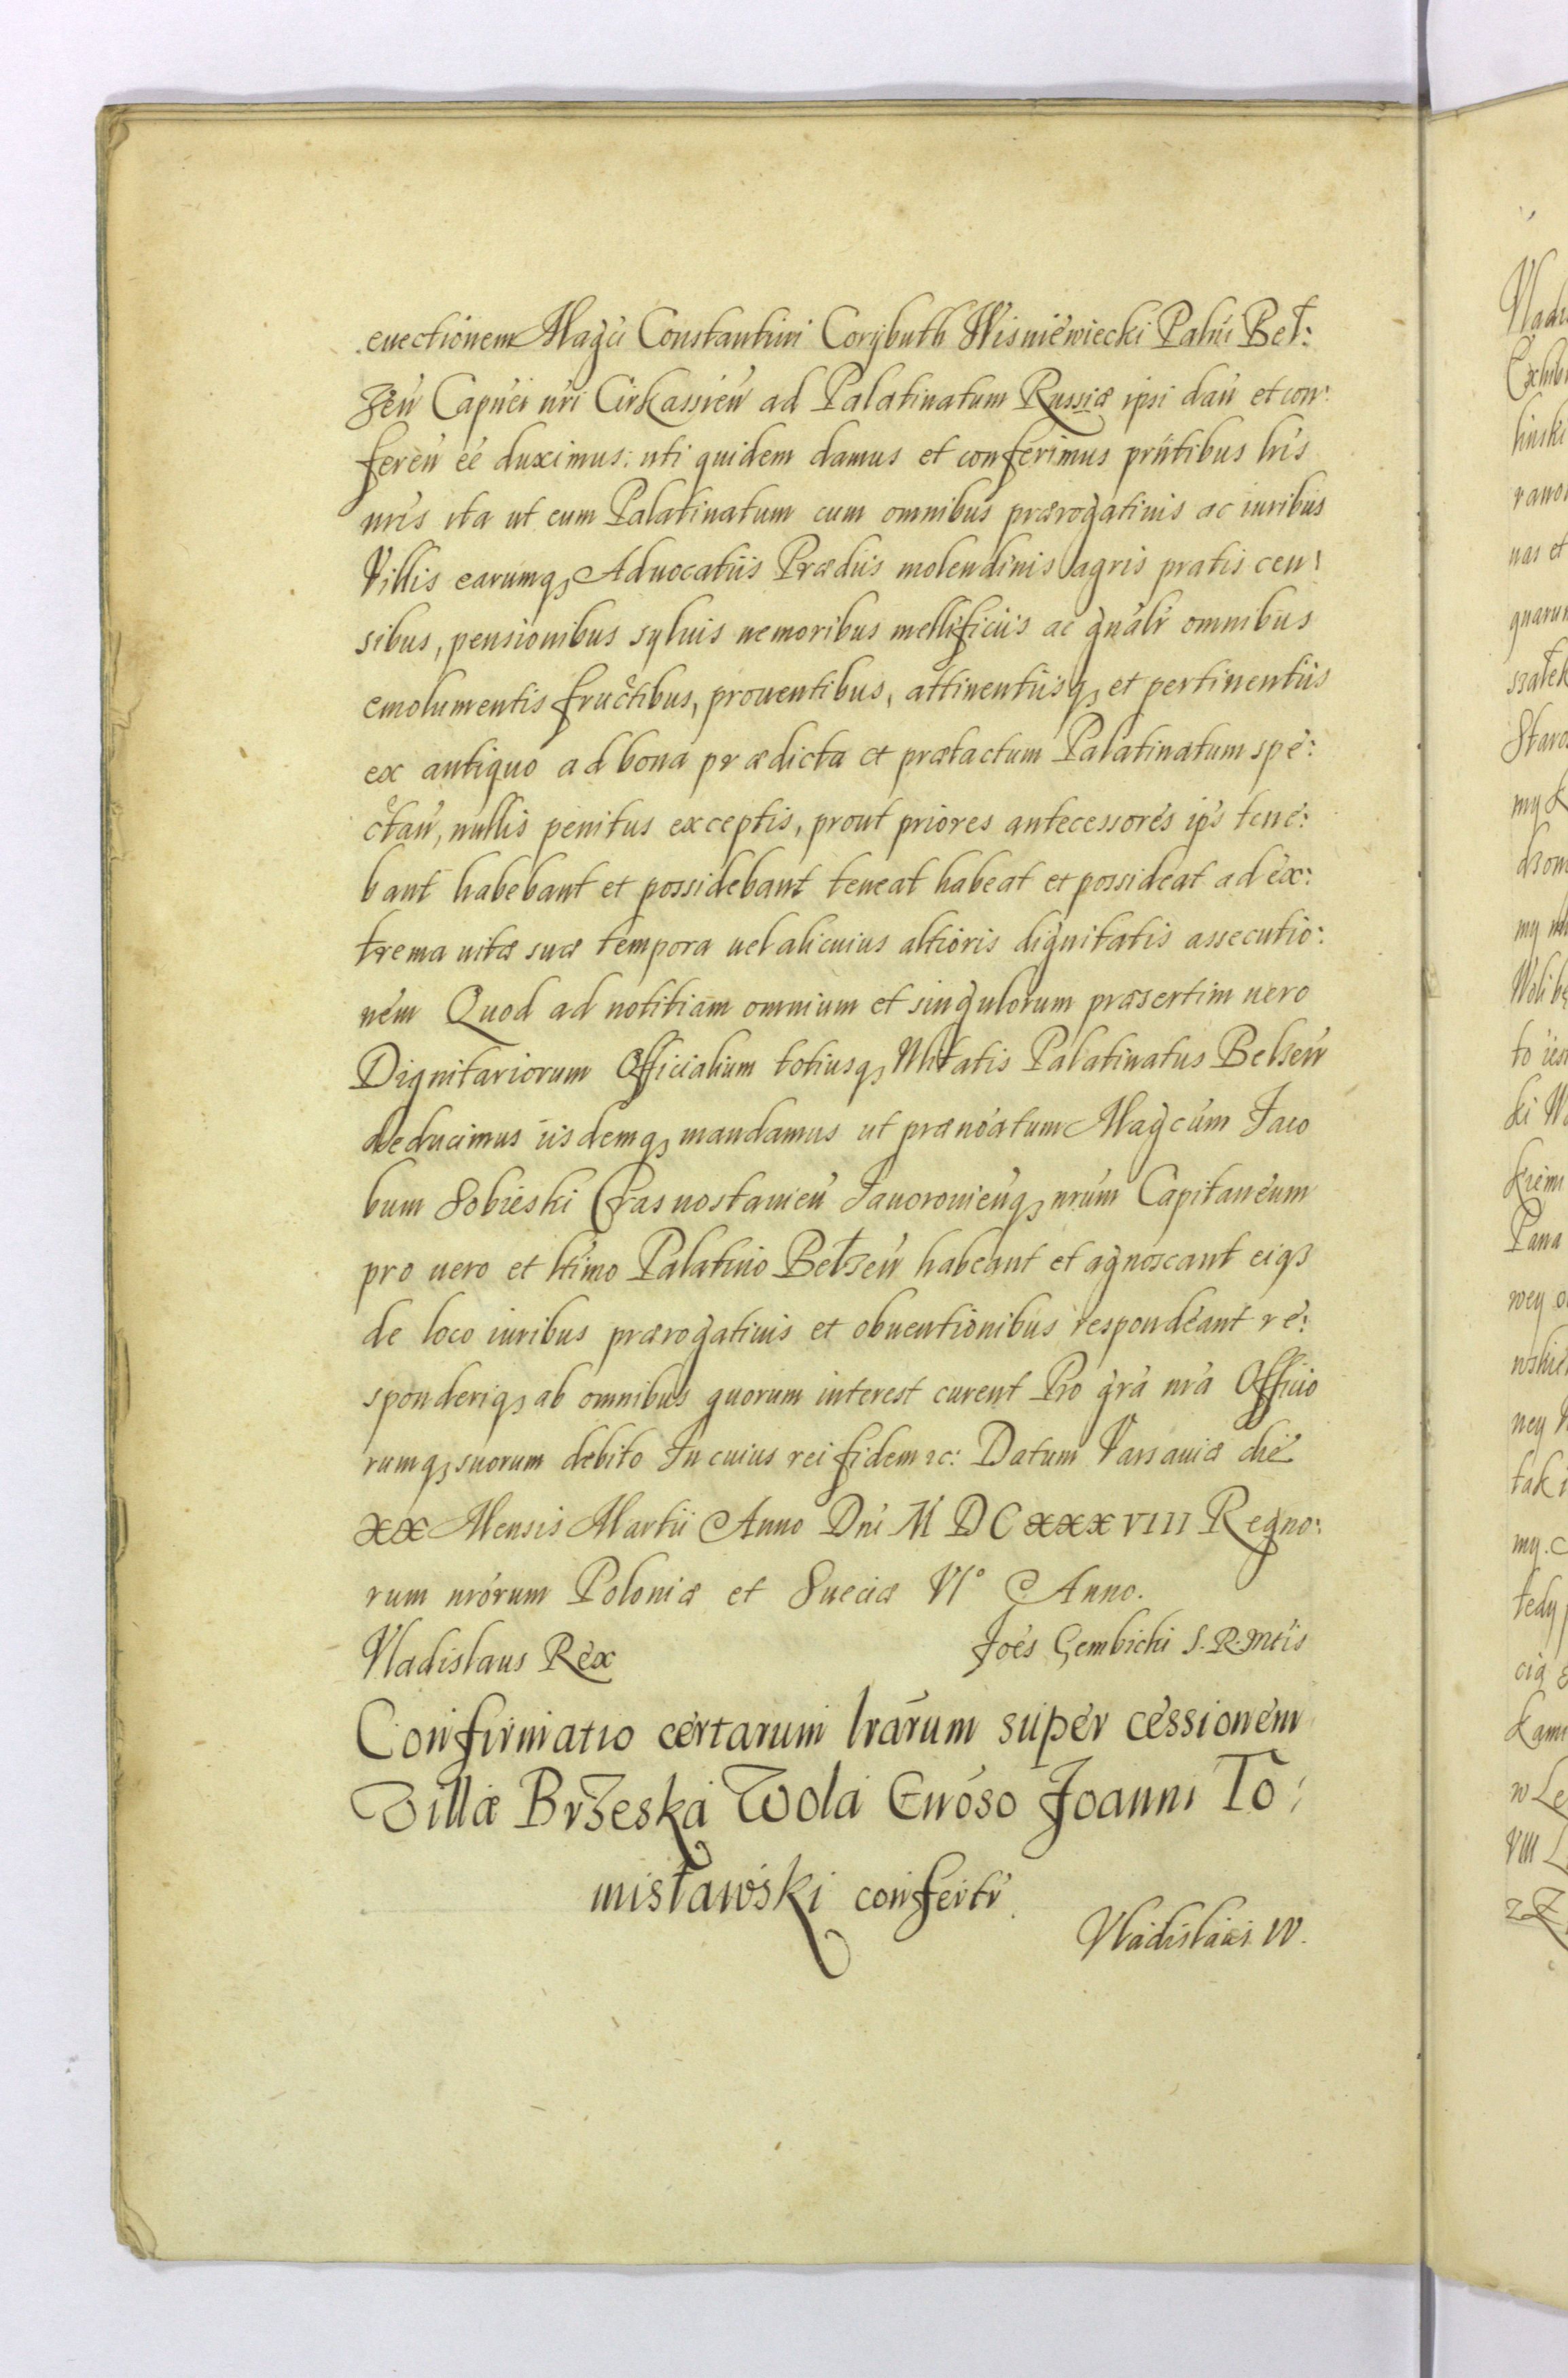 euectionem Magci Constantini Corybuth Wisniewiecki Palni Beł:
zen Capnei nri Cirkassien ad Palatinatum Russiæ ipsi dan et con:
feren ee duximus: uti quidem damus et conferimus prntibus lris
nris ita ut eum Palatinatum cum omnibus prærogatiuis ac iuribus
Villis earumq, Aduocatiis Prædiis molendinis agris pratis cen:
sibus, pensionibus syluis nemoribus mellificiis ac gnalr omnibus
emolumentis fructibus, prouentibus, attinentiisq, et pertinentiis
ex antiquo ad bona prædicta et prætactum Palatinatum spe:
ctan, nullis penitus exceptis, prout priores antecessores ips tene:
bant habebant et possidebant teneat habeat et possideat ad ex:
trema uitæ suæ tempora uel alicuius altioris dignitatis assecutio:
nem Quod ad notitiam omnium et singulorum præsertim uero
Dignitariorum Officialium totiusq, Nlitatis Palatinatus Belzen
deducimus iisdemq, mandamus ut prænoatum Magcum Iaco
bum Sobieski Crasnostauien Iauorouienq, nrum Capitaneum
pro uero et ltimo Palatino Bełzen habeant et agnoscant eiq3
de loco iuribus prærogatiuis et obuentionibus respondeant re:
sponderiq, ab omnibus quorum interest curent Pro gra nra Officio
rumq, suorum debito In cuius rei fidem zc: Datum Varsauiæ die
XX Mensis Martii Anno Dni M DC XXXVIII Regno:
rum nrorum Poloniæ et Sueciæ VI° Anno.
Vladislaus Rex Joes Gembicki S. R. Mtis
Confirmatio certarum lrarum super cessionem
Villæ Brzeska Wola Gnoso Joanni To:
misławski confertr
Vladislaus IV.